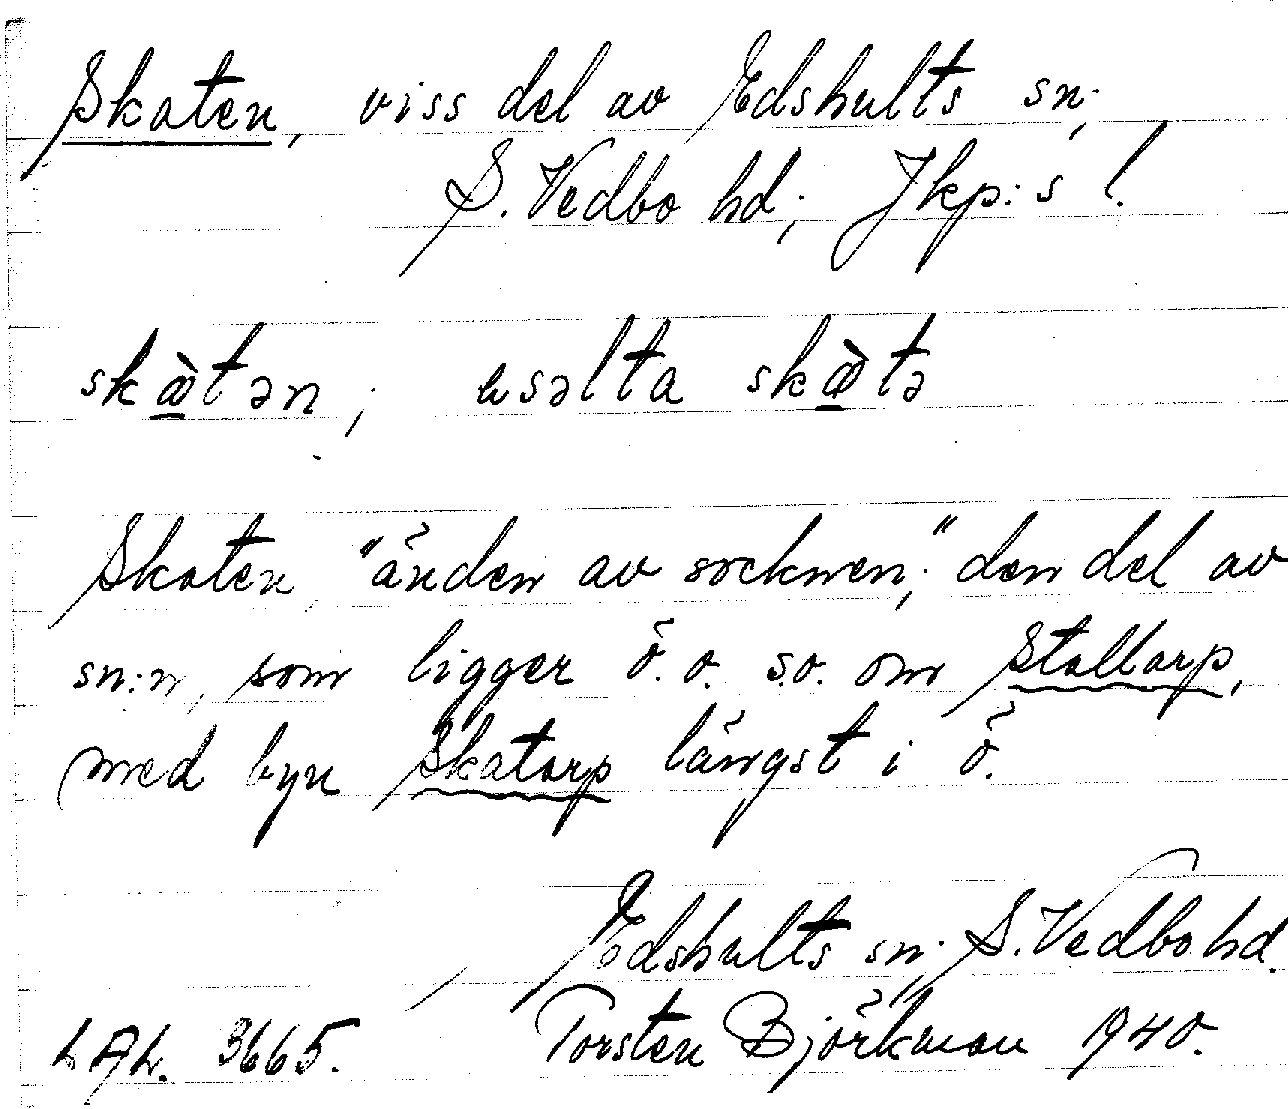 Skaten, viss del av Edshults sn;
S. Vedbo hd; Jkp:s l.
skæ̀tən; usəlta skæ̀tə
Skaten, "änden av socknen"; den del av
sn:n, som ligger ö. o. s.o. om Stallarp,
med byn Skatarp längst i ö.
Edshults sn; S. Vedbo hd.
LAL. 3665. Torsten Björkman 1940.